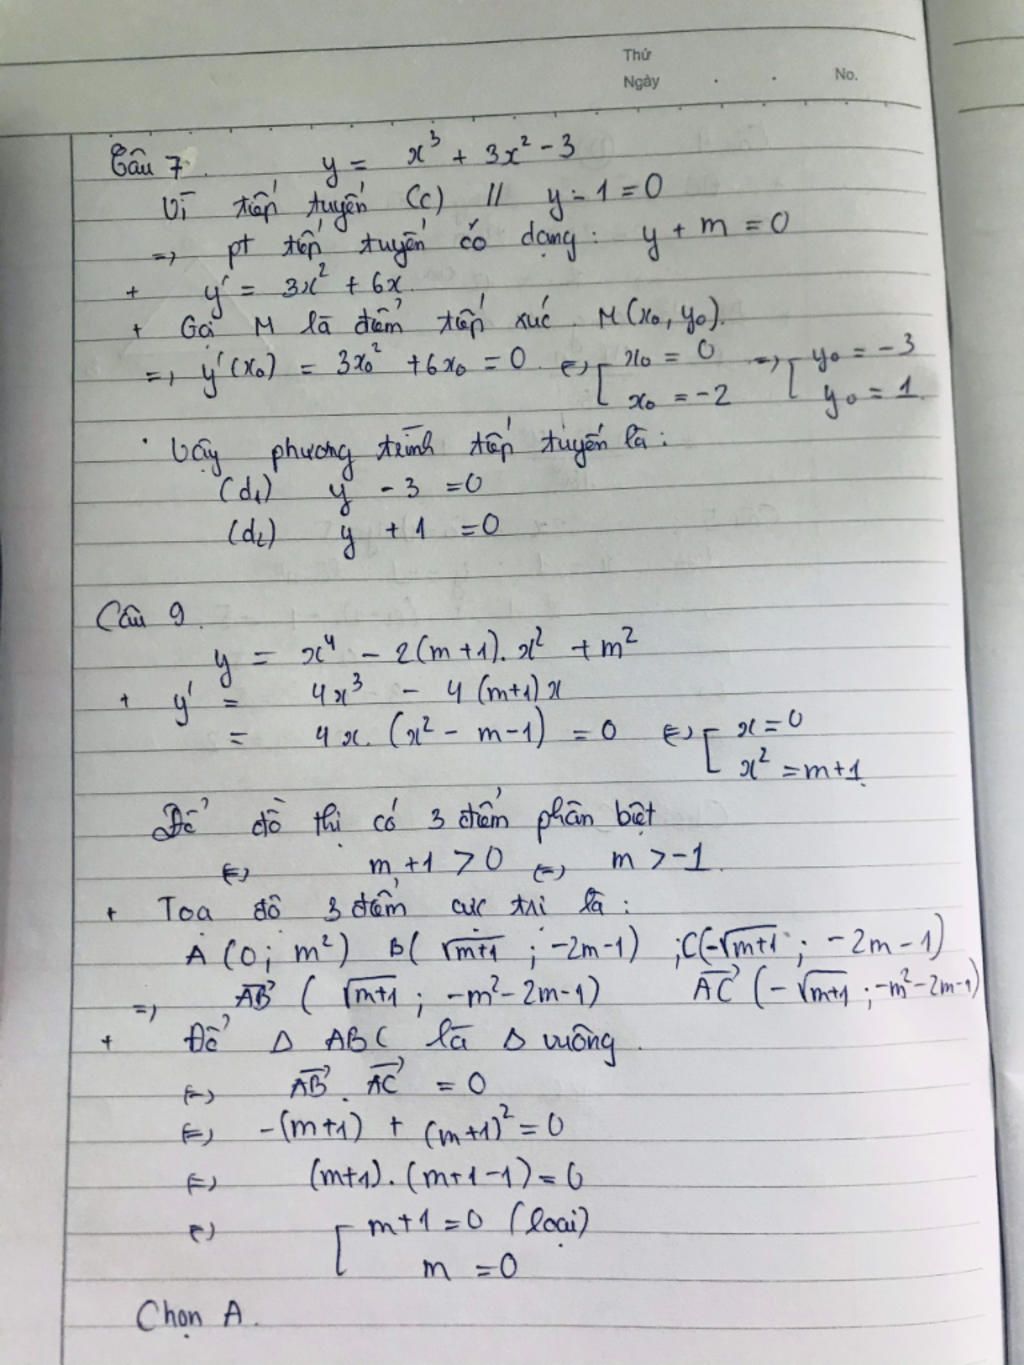 Thứ
Ngày . . No.
Câu 7. y = x³ + 3x² - 3
Vì tiếp tuyến (C) // y - 1 = 0
=> pt tiếp tuyến có dạng: y + m = 0
+ y' = 3x² + 6x
+ Gọi M là điểm tiếp xúc. M(x₀, y₀).
=> y'(x₀) = 3x₀² + 6x₀ = 0 <=> [ x₀ = 0 => [ y₀ = -3
x₀ = -2 y₀ = 1
Vậy phương trình tiếp tuyến là:
(d₁) y - 3 = 0
(d₂) y + 1 = 0
Câu 9.
y = x⁴ - 2(m+1).x² + m²
+ y' = 4x³ - 4(m+1)x
= 4x.(x² - m-1) = 0 <=> [ x = 0
x² = m+1
Để đồ thị có 3 điểm phân biệt
<=> m+1 > 0 <=> m > -1
+ Toạ độ 3 điểm cực trị là:
A (0; m²) B(√m+1 ; -2m-1) ; C(-√m+1 ; -2m-1)
=> AB⃗ (√m+1 ; -m²-2m-1) AC⃗ (-√m+1 ; -m²-2m-1)
+ Để Δ ABC là Δ vuông.
<=> AB⃗ . AC⃗ = 0
<=> -(m+1) + (m+1)² = 0
<=> (m+1).(m+1-1) = 0
<=> [ m+1 = 0 (loại)
m = 0
Chọn A.